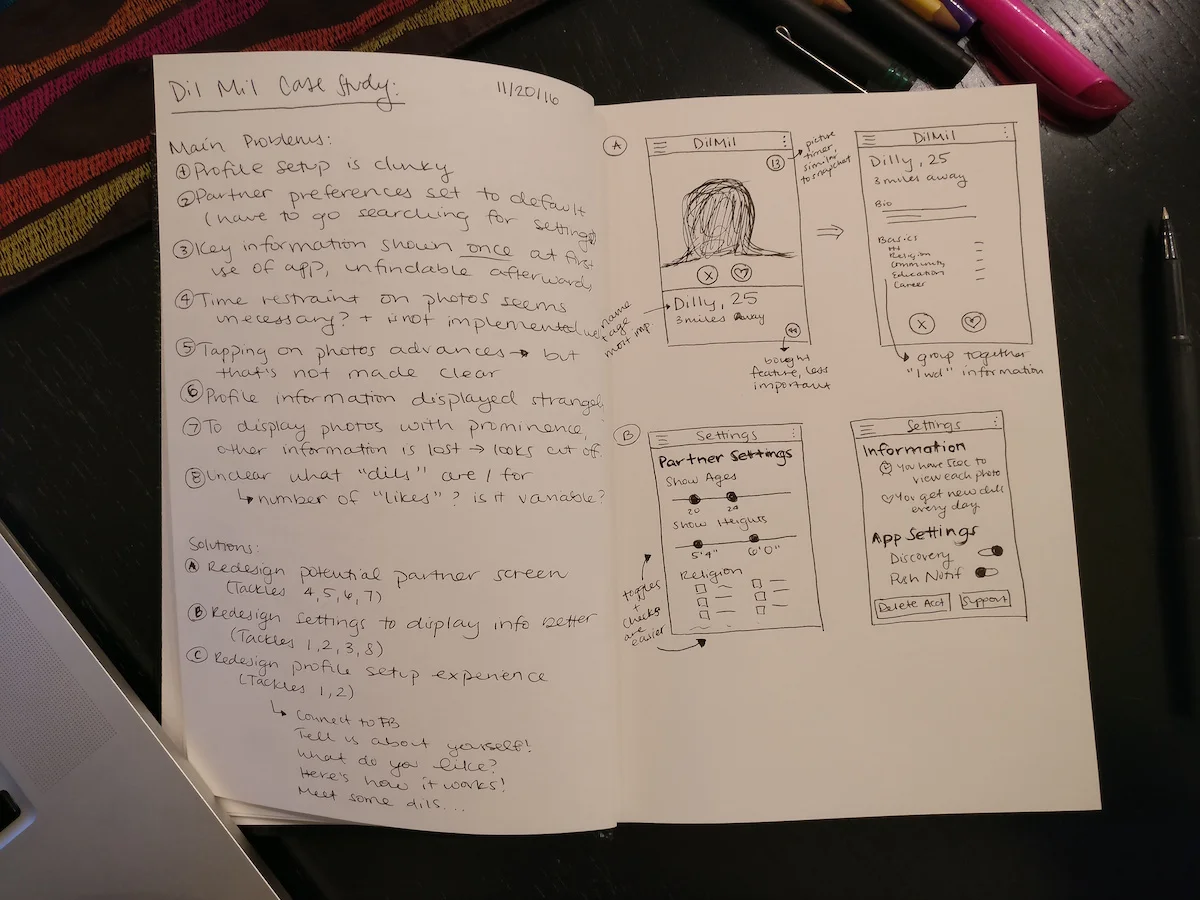 Dil Mil Case Study:
11/20/16
Main Problems:
① Profile setup is clunky
② Partner preferences set to default
(have to go searching for settings)
③ Key information shown once at first
use of app, unfindable afterwards
④ Time restraint on photos seems
necessary? + not implemented
⑤ Tapping on photos advances → but
that's not made clear
⑥ Profile information displayed strangely
⑦ To display photos with prominence,
other information is lost → looks cut off
⑧ Unclear what "dils" are / for
↳ number of "likes"? is it variable?
Solutions:
Ⓐ Redesign potential partner screen
(Tackles 4, 5, 6, 7)
Ⓑ Redesign settings to display info better
(Tackles 1, 2, 3, 8)
Ⓒ Redesign profile setup experience
(Tackles 1, 2)
↳ Connect to FB
Tell us about yourself!
What do you like?
Here's how it works!
Meet some dils...
Ⓐ
DilMil
13
picture
timer,
similar
to snapchat
X
Dilly, 25
3 miles away
name
+ age
most imp.
bought
feature, less
important
DilMil
Dilly, 25
3 miles away
Bio
Basics
Ht
Religion
Community
Education
Career
X
group together
information
Ⓑ
Settings
Partner Settings
Show Ages
20 24
Show Heights
5'4" 6'0"
Religion
toggles
+
checks
are
easier
Settings
Information
You have 5sec to
view each photo
You get new dils
every day
App Settings
Discovery
Push Notif
Delete Acct
Support